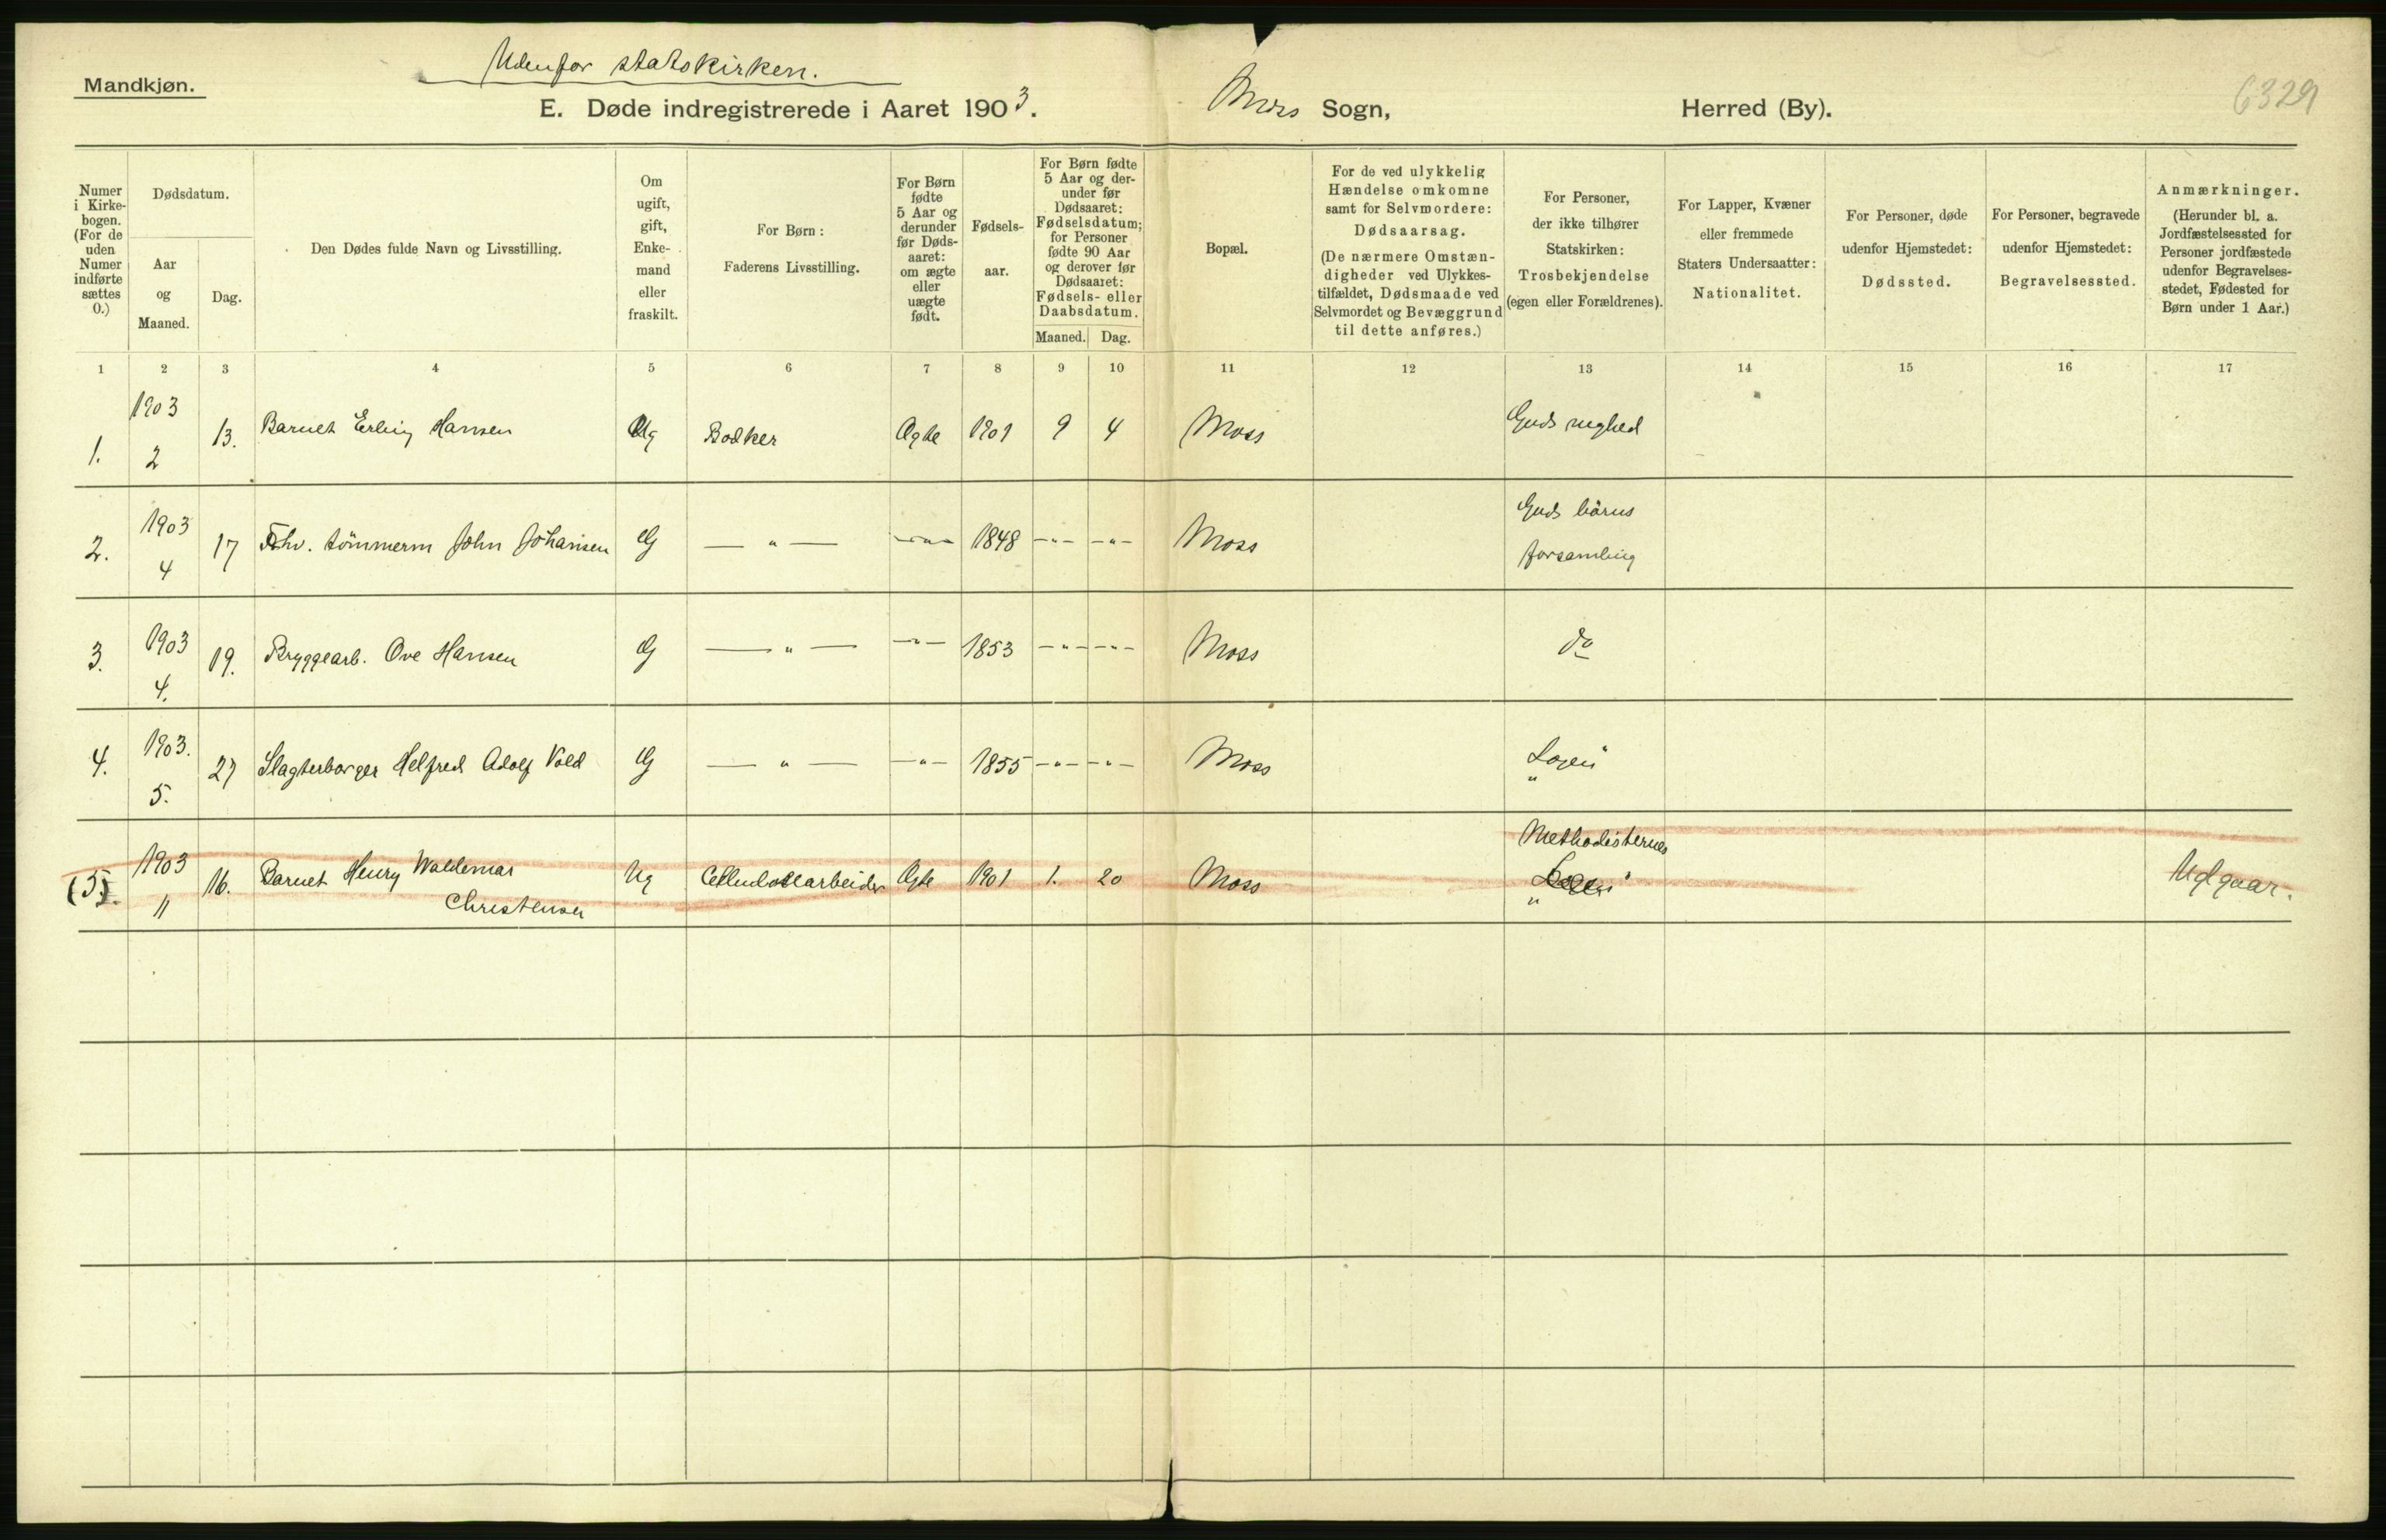 Mandkjøn.
Udenfor statskirken.
E. Døde indregistrerede i Aaret 1903.
Moss Sogn,
Herred (By).
6329
Numer
i Kirke-
bogen.
(For de
uden
Numer
indførte
sættes
0.)
Dødsdatum.
Aar
og
Maaned.
Dag.
Den Dødes fulde Navn og Livsstilling.
Om
ugift,
gift,
Enke-
mand
eller
fraskilt.
For Børn:
Faderens Livsstilling.
For Børn
fødte
5 Aar og
derunder
før Døds-
aaret:
om ægte
eller
uægte
født.
Fødsels-
aar.
For Børn fødte
5 Aar og der-
under før
Dødsaaret:
Fødselsdatum;
for Personer
fødte 90 Aar
og derover før
Dødsaaret:
Fødsels- eller
Daabsdatum.
Maaned. Dag.
Bopæl.
For de ved ulykkelig
Hændelse omkomne
samt for Selvmordere:
Dødsaarsag.
(De nærmere Omstæn-
digheder ved Ulykkes-
tilfældet, Dødsmaade ved
Selvmordet og Bevæggrund
til dette anføres.)
For Personer,
der ikke tilhører
Statskirken:
Trosbekjendelse
(egen eller Forældrenes).
For Lapper, Kvæner
eller fremmede
Staters Undersaatter:
Nationalitet.
For Personer, døde
udenfor Hjemstedet:
Dødssted.
For Personer, begravede
udenfor Hjemstedet:
Begravelsessted.
Anmærkninger.
(Herunder bl. a.
Jordfæstelsessted for
Personer jordfæstede
udenfor Begravelses-
stedet, Fødested for
Børn under 1 Aar.)
1 2 3 4 5 6 7 8 9 10 11 12 13 14 15 16 17
1903
1. 2 13. Barnet Erling Hansen Ug Bödker Ægte 1901 9 4 Moss Guds meghed
1903 Guds börns
2. 4 17 Fhv. tömmerm John Johansen G — " — — " — 1848 - " - - " - Moss forsamling
1903
3. 4. 19. Bryggearb. Ove Hansen G — " — — " — 1853 - " - - " - Moss do
1903.
4. 5. 27 Slagterborger Helfred Adolf Vold G — " — — " — 1855 - " - - " - Moss
1903 Methodisternes
(5). 11 16. Barnet Henry Waldemar Ug Cellulosearbeider Ægte 1901 1. 20 Moss Udgaar.
Christensen